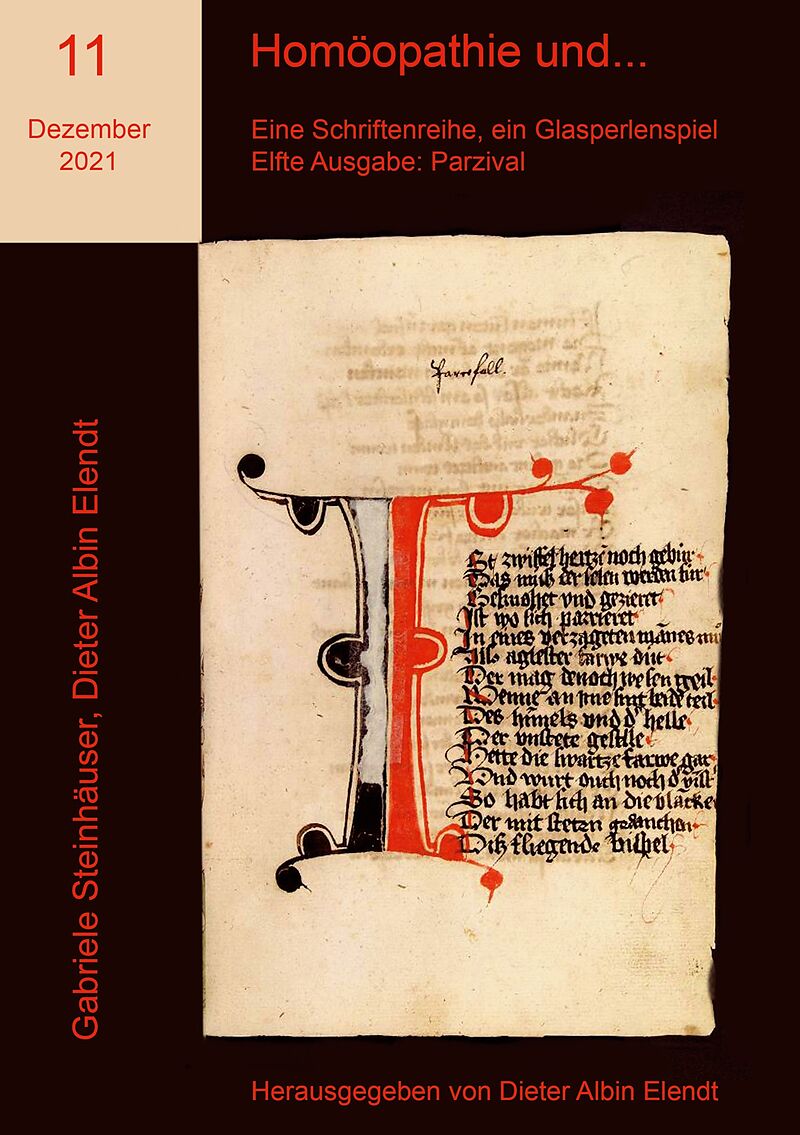 11
Dezember
2021
Homöopathie und...
Eine Schriftenreihe, ein Glasperlenspiel
Elfte Ausgabe: Parzival
Gabriele Steinhäuser, Dieter Albin Elendt
Parcefall.
I
St zwiffel hertzē noch gebur
Das muſz der selen werden sur
Gesmohet vnd gezieret
Ist wo sich parrieret
In eines verzageten mānes
Also aglester farwe dut
Der mag denoch wesen
Wenne an ime sint beide teil
Des himels vnd d' helle
Der vnstete geselle
Hette die swartze farwe gar
Vnd wurt ouch noch d'
So habt sich an die blancke
Der mit steten
Diſz fliegende bischel
Herausgegeben von Dieter Albin Elendt